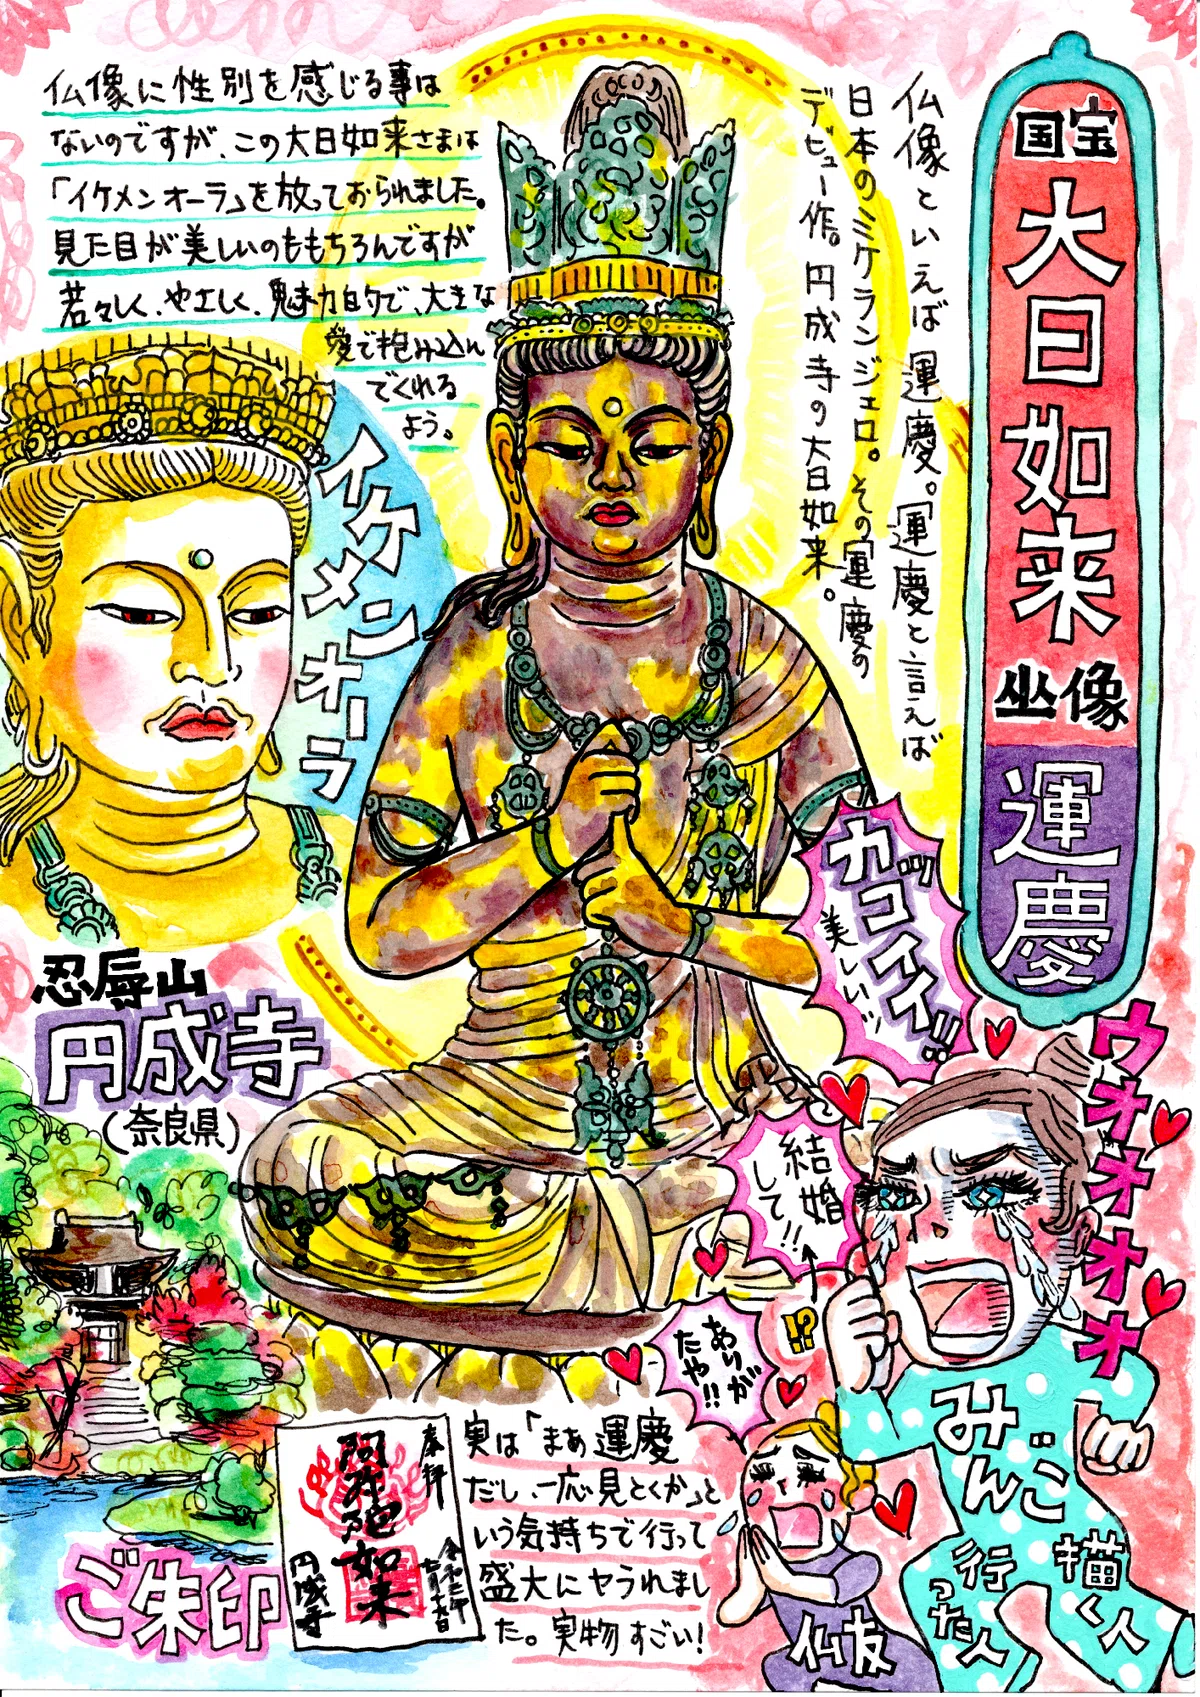 国宝
大日如来
坐像
運慶
仏像といえば運慶。運慶と言えば
日本のミケランジェロ。その運慶の
デビュー作。円成寺の大日如来。
仏像に性別を感じる事は
ないのですが、この大日如来さまは
「イケメンオーラ」を放っておられました。
見た目が美しいのももちろんですが
若々しく、やさしく、魅力的で、大きな
愛で抱み込ん
でくれる
よう。
イケメン
オーラ
カッコイイ!!
美しい!!
忍辱山
円成寺
(奈良県)
ウオオオオオオ
結婚
して!!
!?
ありが
たや!!
実は「まあ運慶
だし、一応見とくか」と
いう気持ちで行って
盛大にヤラれまし
た。実物すごい!
奉拝
阿弥陀如来
令和三年
七月十六日
円成寺
ご朱印
みんご
描く人
行った人
仏友